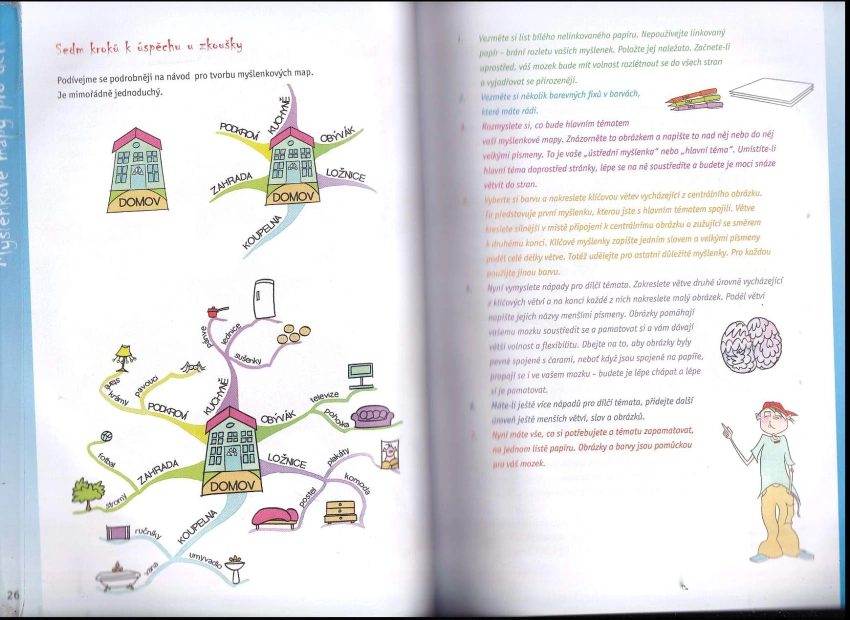 Myšlenkové mapy pro děti
Sedm kroků k úspěchu u zkoušky
Podívejme se podrobněji na návod pro tvorbu myšlenkových map.
Je mimořádně jednoduchý.
DOMOV
KUCHYNĚ
PODKROVÍ
OBÝVÁK
ZAHRADA
LOŽNICE
DOMOV
KOUPELNA
lednice
sušenky
pavouci
krámy
KUCHYNĚ
PODKROVÍ
OBÝVÁK
televize
pohovka
fotbal
stromy
ZAHRADA
LOŽNICE
plakáty
komoda
postel
DOMOV
KOUPELNA
ručníky
vana
umyvadlo
26
1. Vezměte si list bílého nelinkovaného papíru. Nepoužívejte linkovaný
papír – brání rozletu vašich myšlenek. Položte jej naležato. Začnete-li
uprostřed, váš mozek bude mít volnost rozlétnout se do všech stran
a vyjadřovat se přirozeněji.
2. Vezměte si několik barevných fixů v barvách,
které máte rádi.
3. Rozmyslete si, co bude hlavním tématem
vaší myšlenkové mapy. Znázorněte to obrázkem a napište to nad něj nebo do něj
velkými písmeny. To je vaše „ústřední myšlenka“ nebo „hlavní téma“. Umístíte-li
hlavní téma doprostřed stránky, lépe se na ně soustředíte a budete je moci snáze
větvit do stran.
4. Vyberte si barvu a nakreslete klíčovou větev vycházející z centrálního obrázku.
Ta představuje první myšlenku, kterou jste s hlavním tématem spojili. Větve
kreslete silnější v místě připojení k centrálnímu obrázku a zužující se směrem
k druhému konci. Klíčové myšlenky zapište jedním slovem a velkými písmeny
podél celé délky větve. Totéž udělejte pro ostatní důležité myšlenky. Pro každou
použijte jinou barvu.
5. Nyní vymyslete nápady pro dílčí témata. Zakreslete větve druhé úrovně vycházející
z klíčových větví a na konci každé z nich nakreslete malý obrázek. Podél větví
napište jejich názvy menšími písmeny. Obrázky pomáhají
vašemu mozku soustředit se a pamatovat si a vám dávají
větší volnost a flexibilitu. Dbejte na to, aby obrázky byly
pevně spojené s čarami, neboť když jsou spojené na papíře,
propojí se i ve vašem mozku – budete je lépe chápat a lépe
si je pamatovat.
6. Máte-li ještě více nápadů pro dílčí témata, přidejte další
úroveň ještě menších větví, slov a obrázků.
7. Nyní máte vše, co si potřebujete o tématu zapamatovat,
na jednom listě papíru. Obrázky a barvy jsou pomůckou
pro váš mozek.